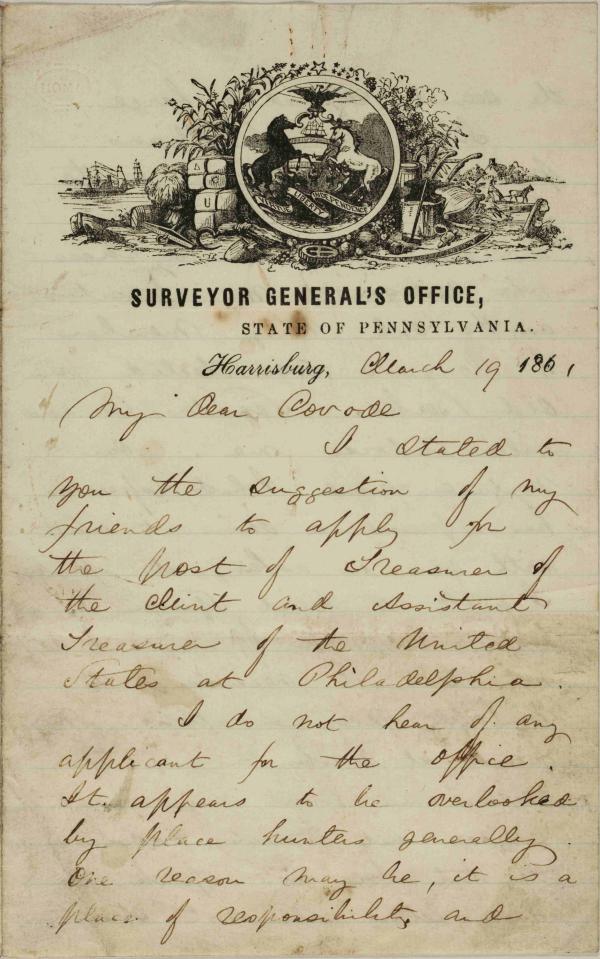 SURVEYOR GENERAL'S OFFICE,
STATE OF PENNSYLVANIA.
Harrisburg, March 19 1861
My Dear Covode
I stated to
you the suggestion of my
friends to apply for
the post of Treasurer of
the Mint and Assistant
Treasurer of the United
States at Philadelphia.
I do not hear of any
applicant for the office.
It appears to be overlooked
by place hunters generally.
One reason may be, it is a
place of responsibility and